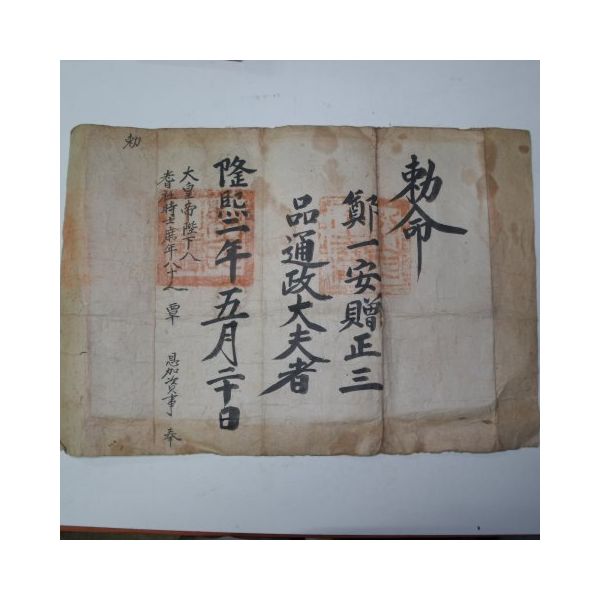 勅命
鄭一安贈正三
品通政大夫者
隆熙二年五月二十日
大皇帝陛下入
耆社時士庶年八十人 覃
恩加資事 奉
勅